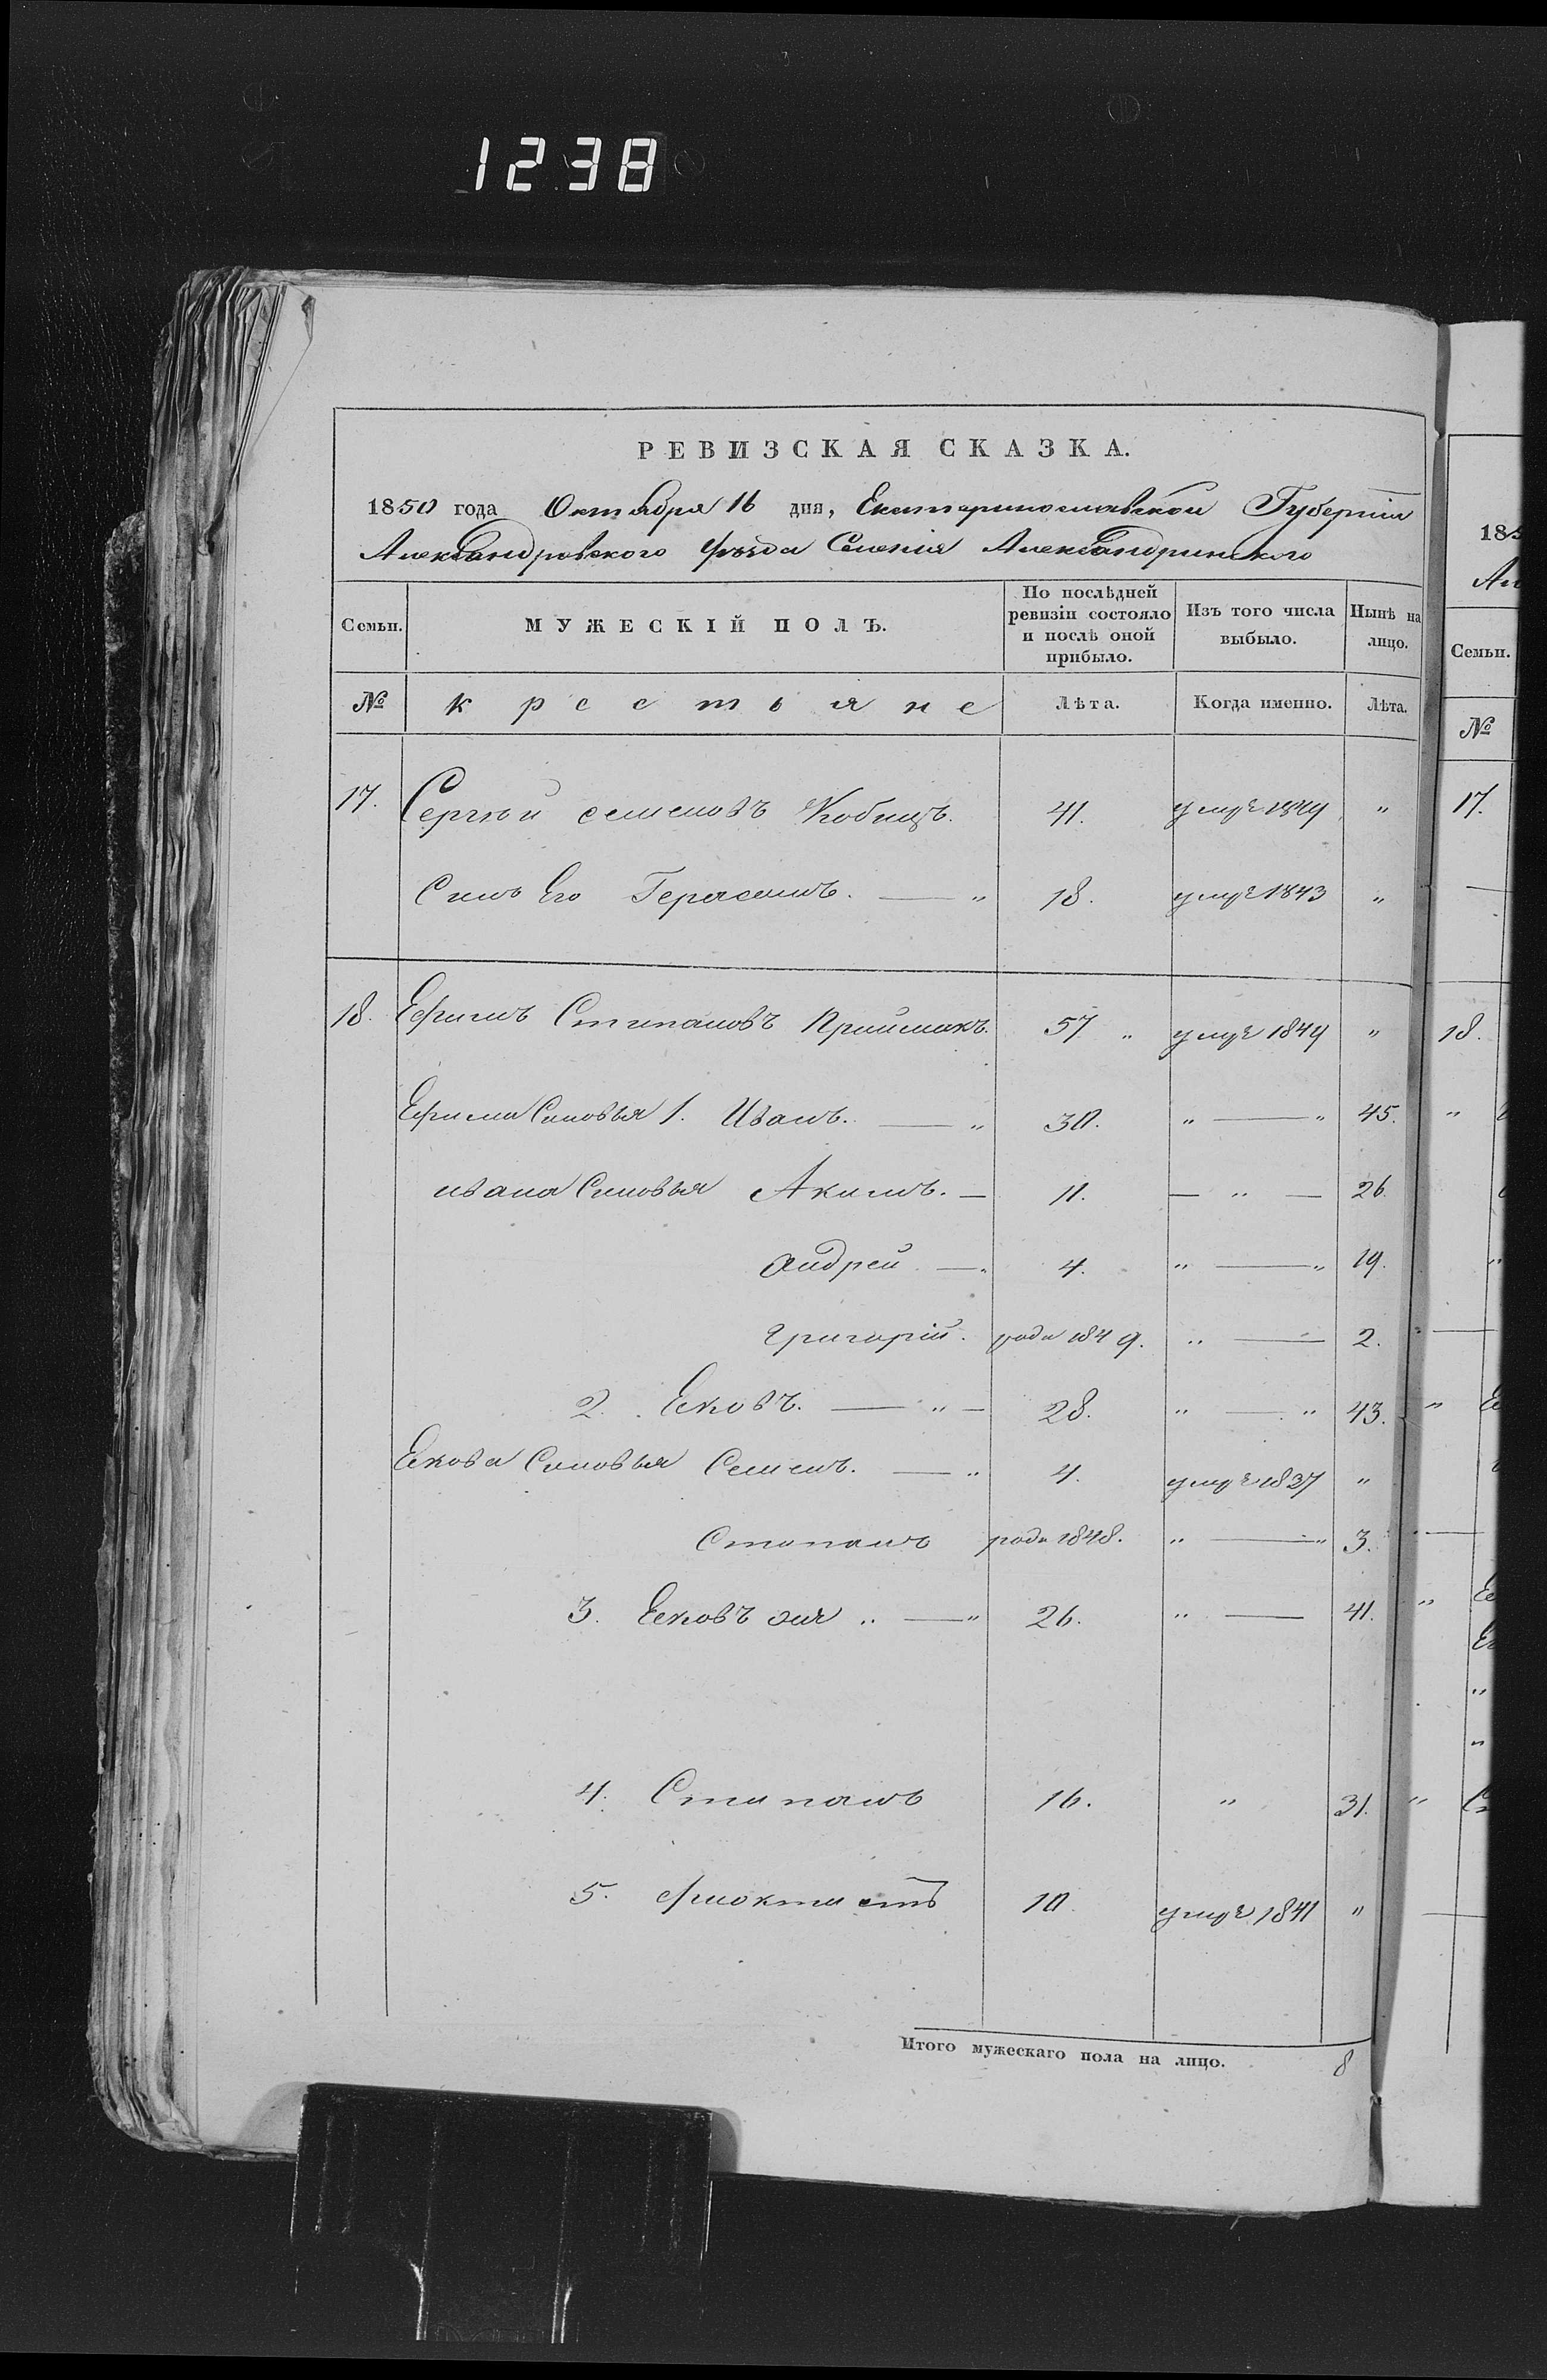 1238
РЕВИЗСКАЯ СКАЗКА.
1850 года Октября 16 дня, Екатеринославской Губерніи
Александровского уѣзда Селенія Александринского
Семьи. МУЖЕСКІЙ ПОЛЪ. По послѣдней ревизіи состояло и послѣ оной прибыло. Изъ того числа выбыло. Нынѣ на лицо.
№ крестьяне Лѣта. Когда именно. Лѣта.
17. Сергѣй семеновъ Кобицъ. 41. умре 1849 "
Синъ Его Герасимъ. — " 18. умре 1843 "
18. Ефимъ Стипановъ Приймакъ. 57 " умре 1849 "
Ефима Синовья 1. Иванъ. — " 30. " — " 45.
ивана Синовья Акимъ. — 11. — " — 26.
Андрей — " 4. " — " 19.
Григорій. рода 1849. " — 2.
2. Ековъ. — " — 28. " — " 43.
Екова Синовья Семенъ. — " 4. умре 1837 "
Стипанъ рода 1848. " — " 3.
3. Ековъ же " — " 26. " — 41.
4. Стипанъ 16. " 31.
5. 10. умре 1841 "
Итого мужескаго пола на лицо. 8
185
Ал
Семьи.
№
17.
18.